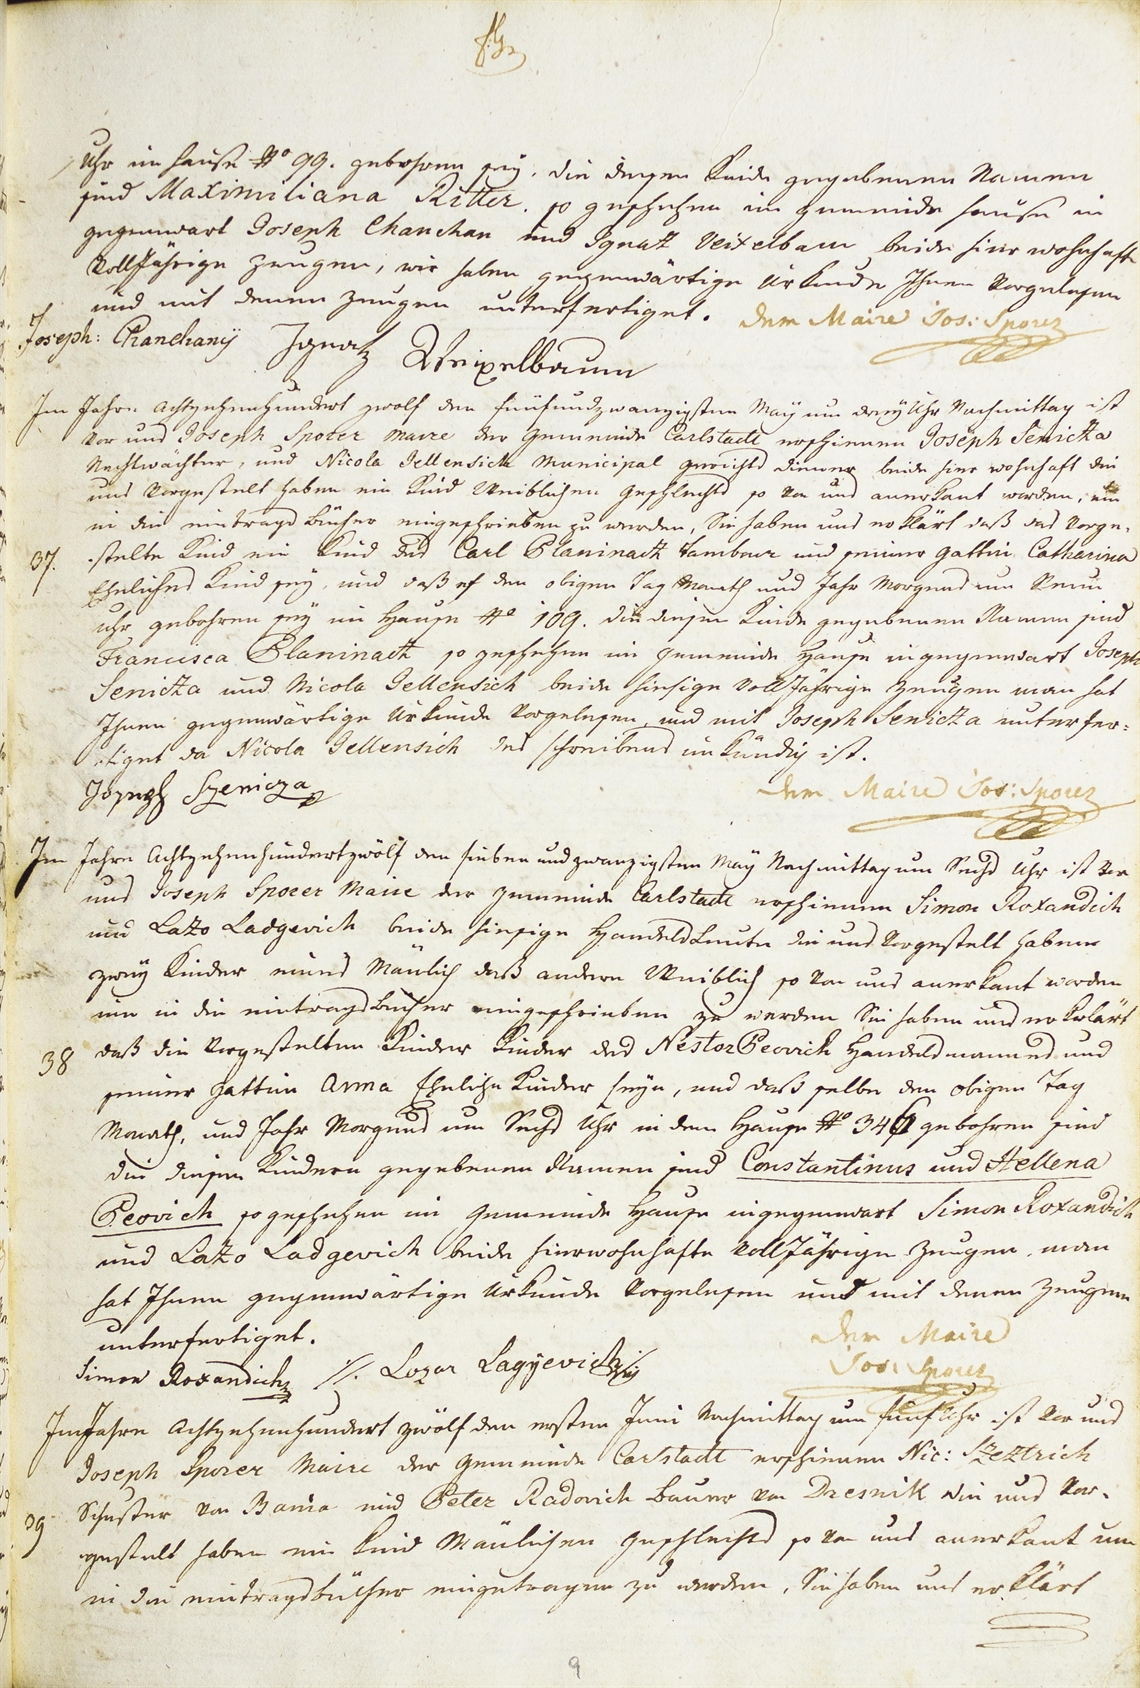 Uhr im Hause No 99. gebohren sey, die diesem Kinde gegebenen Namen
sind Maximiliana Ritter. so geschehen im gemeinde Hause in
gegenwart Joseph Chanchan und Ignatz Veixelbaum beide hier wohnhafte
Volljährige Zeugen, wir haben gegenwärtige Urkunde Ihnen Vorgelesen
und mit denen Zeugen unterfertiget. Der Maire Jos: Sporer
Joseph: Chanchany Ignatz Weixelbaum
Im Jahre Achtzehenhundert zwölf den fünfundzwanzigsten May um drey Uhr Nachmittag ist
vor uns Joseph Sporer Maire der Gemeinde Carlstadt erschienen Joseph Senicza
Nachtwächter, und Nicola Jellensich Municipal gerichts Diener beide hier wohnhaft die
uns Vorgestelt haben ein Kind Weiblichen Geschlechts so von uns anerkant worden, um
in die eintrags Bücher eingeschrieben zu werden, Sie haben uns erklärt daß das Vorge-
37. stelte Kind ein Kind des Carl Planinack Tambour und seiner gattin Catharina
Eheliches Kind sey, und daß es den obigen Tag Monath und Jahr Morgens um Neun
Uhr gebohren sey im Hause No 109. die diesem Kinde gegebenen Namen sind
Francisca Planinack so geschehen im gemeinde Hause in gegenwart Joseph
Senicza und Nicola Jellensich beide hiesige Volljährige Zeugen man hat
Ihnen gegenwärtige Urkunde Vorgelesen, und mit Joseph Senicza unterfer-
tiget da Nicola Jellensich des schreibens unkündig ist.
Joseph Szenicza Der Maire Jos: Sporer
Im Jahre Achtzehenhundertzwölf den sieben und zwanzigsten May Nachmittag um Sechs Uhr ist vor
uns Joseph Sporer Maire der gemeinde Carlstadt erschienen Simon Roxandich
und Lazo Ladgevich beide hiesige Handelsleute die uns Vorgestelt haben
zwey Kinder eines Mänlich das andere Weiblich so von uns anerkant worden
um in die eintragsbücher eingeschrieben zu werden Sie haben uns erklärt
38 daß die Vorgestelten Kinder Kinder des Nestor Peovich Handelsmannes und
seiner gattin Anna Eheliche Kinder seyn, und daß selbe den obigen Tag
Monath, und Jahr Morgens um Sechs Uhr in dem Hause No 346 gebohren sind
die diesen Kindern gegebenen Namen sind Constantinus und Hellena
Peovich so geschehen im Gemeinde Hause in gegenwart Simon Roxandich
und Lazo Ladgevich beide hierwohnhafte Volljährige Zeugen. man
hat Ihnen gegenwärtige Urkunde Vorgelesen und mit denen Zeugen
unterfertiget. Der Maire
Simon Roxandich Lazar Lagyevich Jos: Sporer
Im Jahre Achtzehenhundert zwölf den ersten Juni Nachmittag um fünf Uhr ist vor uns
Joseph Sporer Maire der Gemeinde Carlstadt erschienen Nic: Szeztrich
39 Schuster von Bania und Peter Radovich Bauer von Dresnik die uns Vor-
gestelt haben ein Kind Mänlichen geschlechts so von uns anerkant um
in die eintragsbücher eingetragen zu werden, Sie haben uns erklärt
9